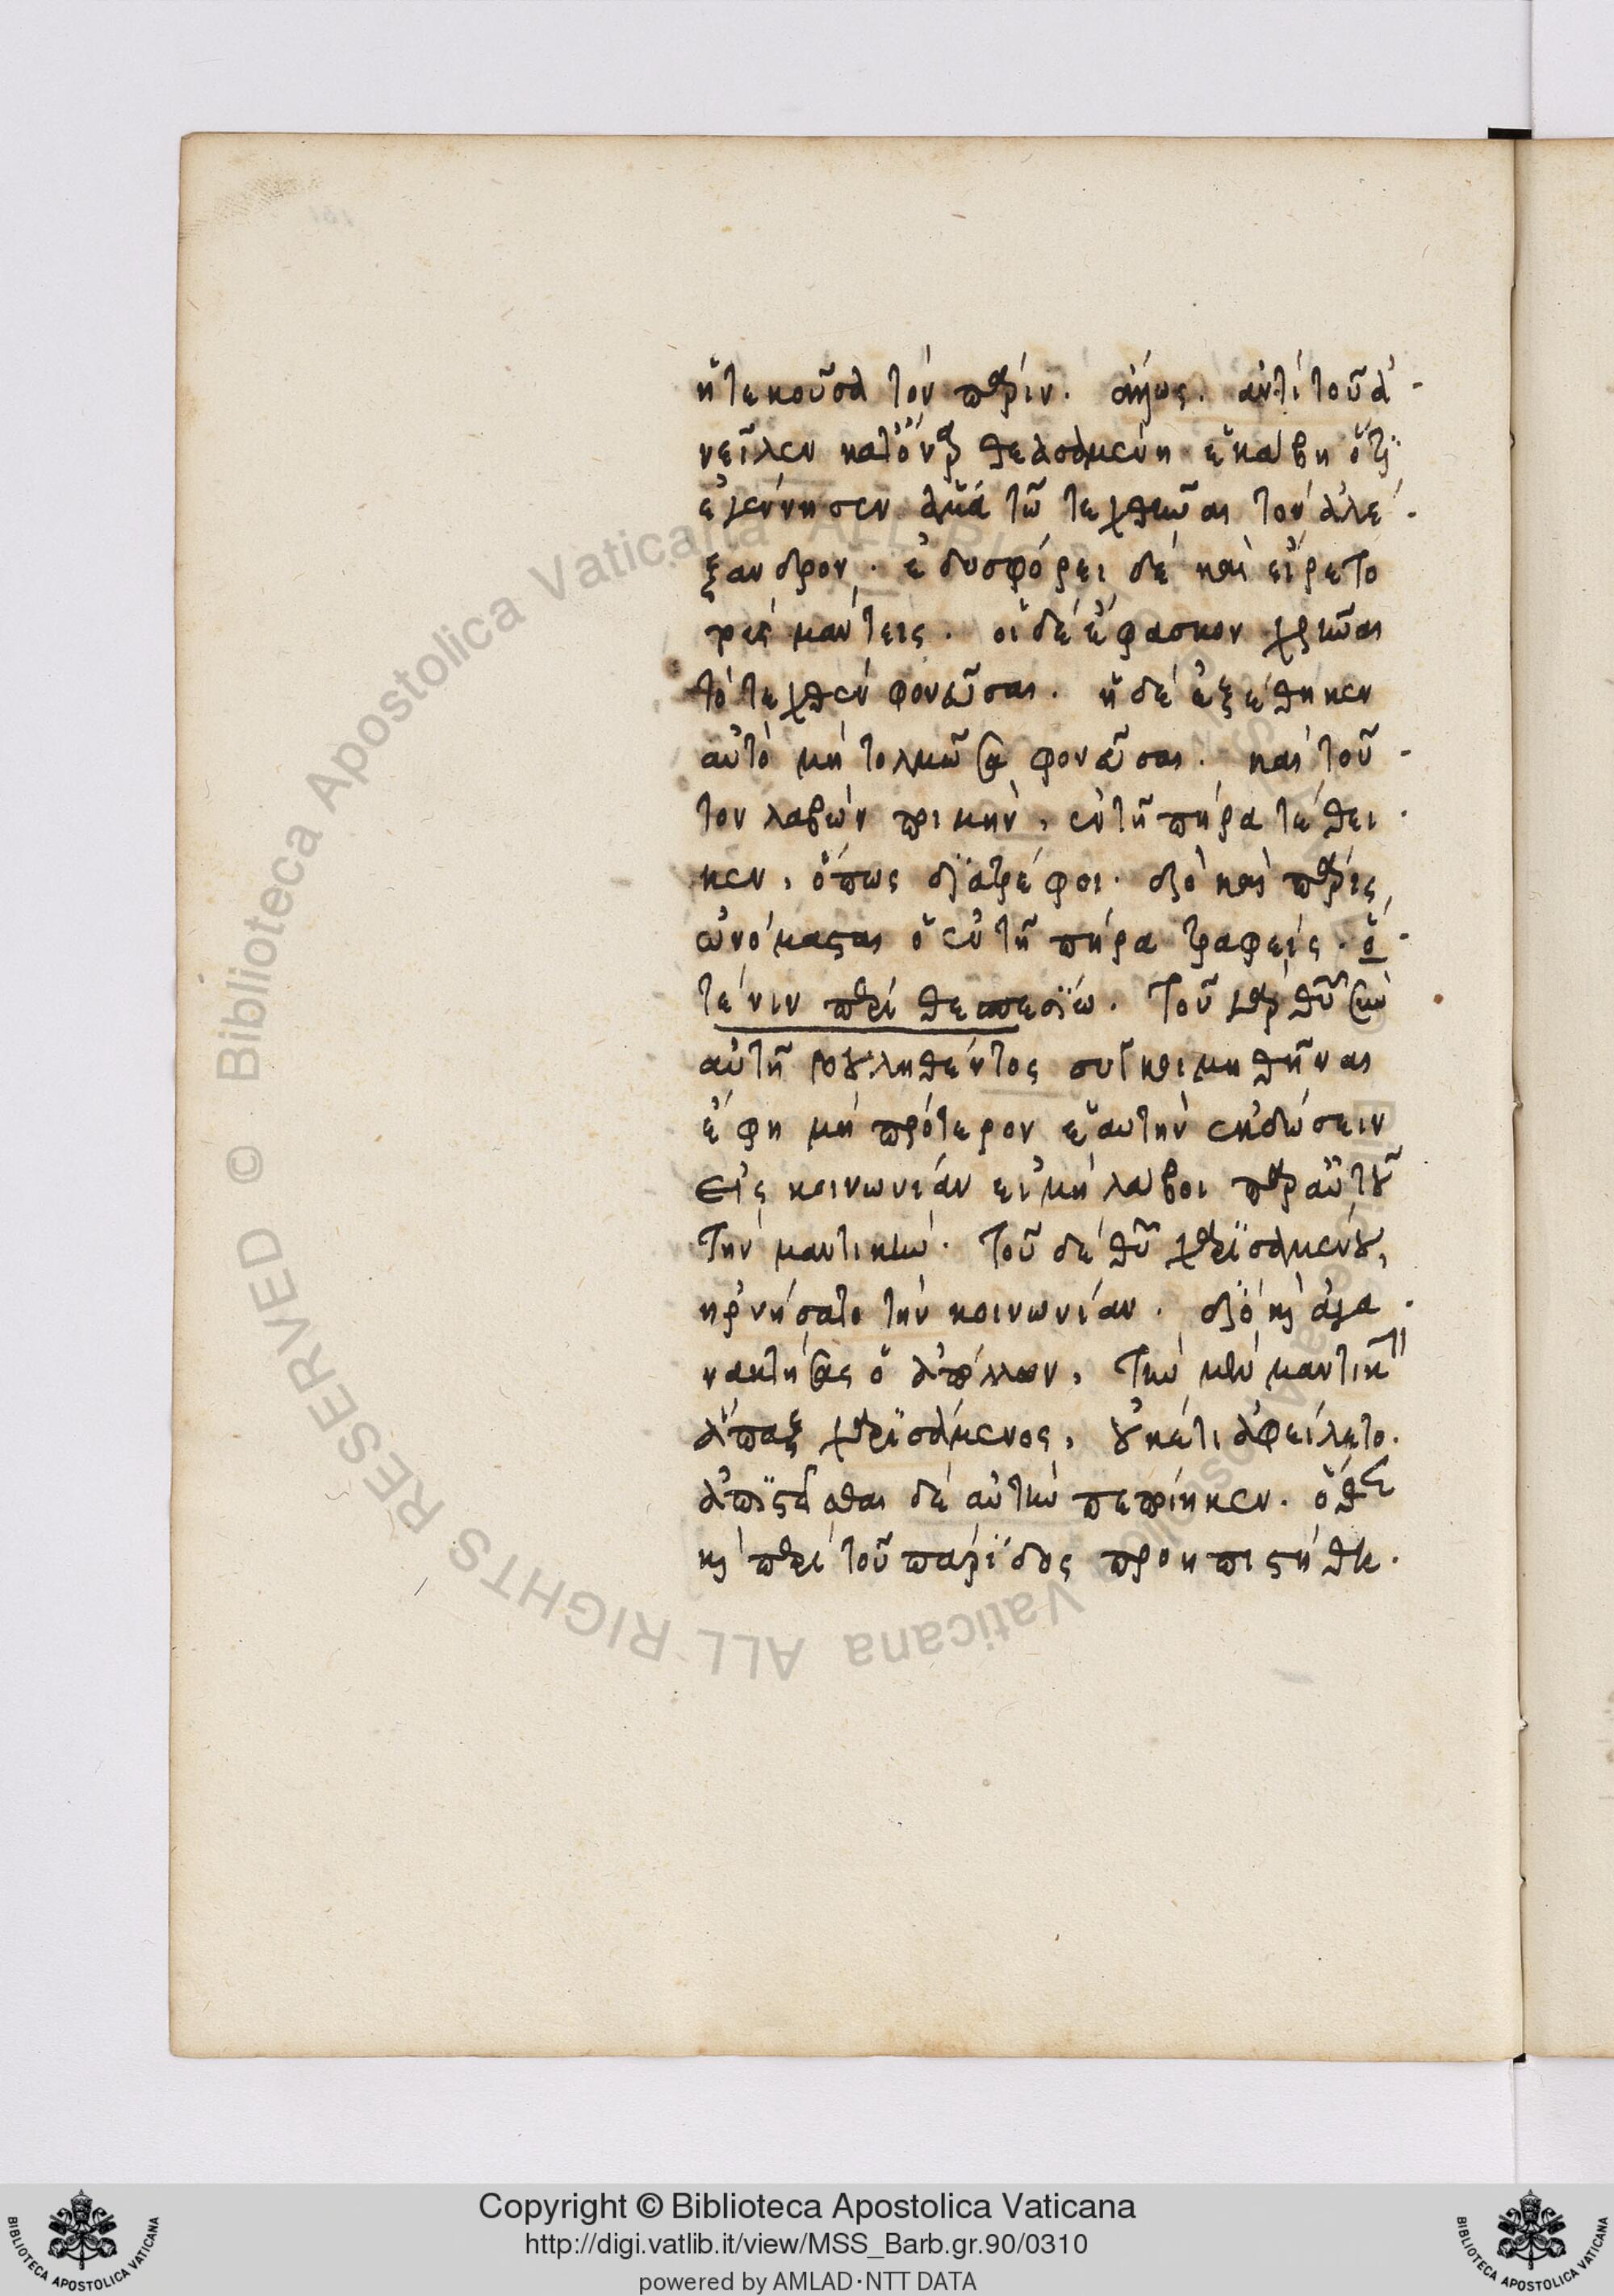 ἡ τεκοῦσα τὸν πάριν. ἄλλως. ἀντὶ τοῦ ἀ-
νεῖλεν κατ' ὄναρ θεασαμένη ἑκάβη ὅτι
ἐγέννησεν ἅμα τῶ τεχθῆναι τὸν ἀλέ-
ξανδρον. ἐδυσφόρει δὲ καὶ εἴρετο
τοὺς μάντεις. οἱ δὲ ἔφασκον χρῆναι
τὸ τεχθὲν φονεῦσαι. ἡ δὲ ἐξέθηκεν
αὐτὸ μὴ τολμῶσα φονεῦσαι. καὶ τοῦ-
τον λαβὼν ποιμὴν, ἐν τῆ πήρα τέθει-
κεν, ὅπως διατρέφοι. διὸ καὶ πάρις
ὠνόμασται ὁ ἐν τῆ πήρα τραφείς. ὅ-
τε νιν παρὰ θεσπεσίω. Τοῦ γὰρ θεοῦ σὺν
αὐτῆ βουληθέντος συγκοιμηθῆναι
ἔφη μὴ πρότερον ἑαυτὴν ἐκδώσειν
εἰς κοινωνίαν εἰ μὴ λάβοι παρ' αὐτοῦ
τὴν μαντικὴν. τοῦ δὲ θεοῦ χαρισαμένου,
ἠρνήσατο τὴν κοινωνίαν. διὸ καὶ ἀγα-
νακτήσας ὁ ἀπόλλων, τὴν μὲν μαντικὴν
ἅπαξ χαρισάμενος, οὐκέτι ἀφείλετο.
ἀπιστεῖσθαι δὲ αὐτὴν πεποίηκεν. ὅθεν
καὶ περὶ τοῦ πάριδος προηπιστήθη.
Copyright © Biblioteca Apostolica Vaticana
http://digi.vatlib.it/view/MSS_Barb.gr.90/0310
powered by AMLAD·NTT DATA
© Biblioteca Apostolica Vaticana ALL RIGHTS RESERVED
BIBLIOTECA APOSTOLICA VATICANA
BIBLIOTECA APOSTOLICA VATICANA